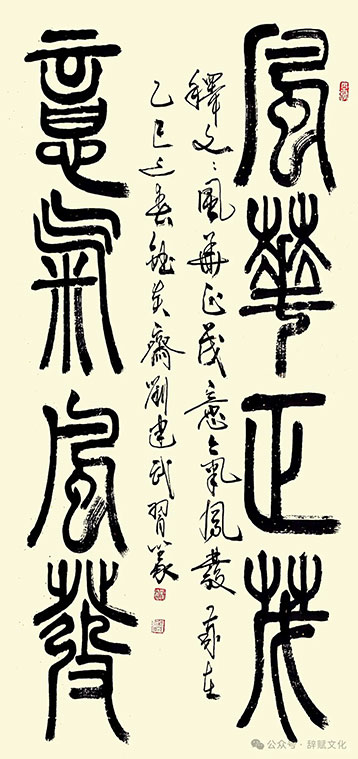 風華正茂
意氣風發
釋文：風華正茂意氣風發 歲在
乙巳之春 齋劉建武習篆
公众号 · 辞赋文化